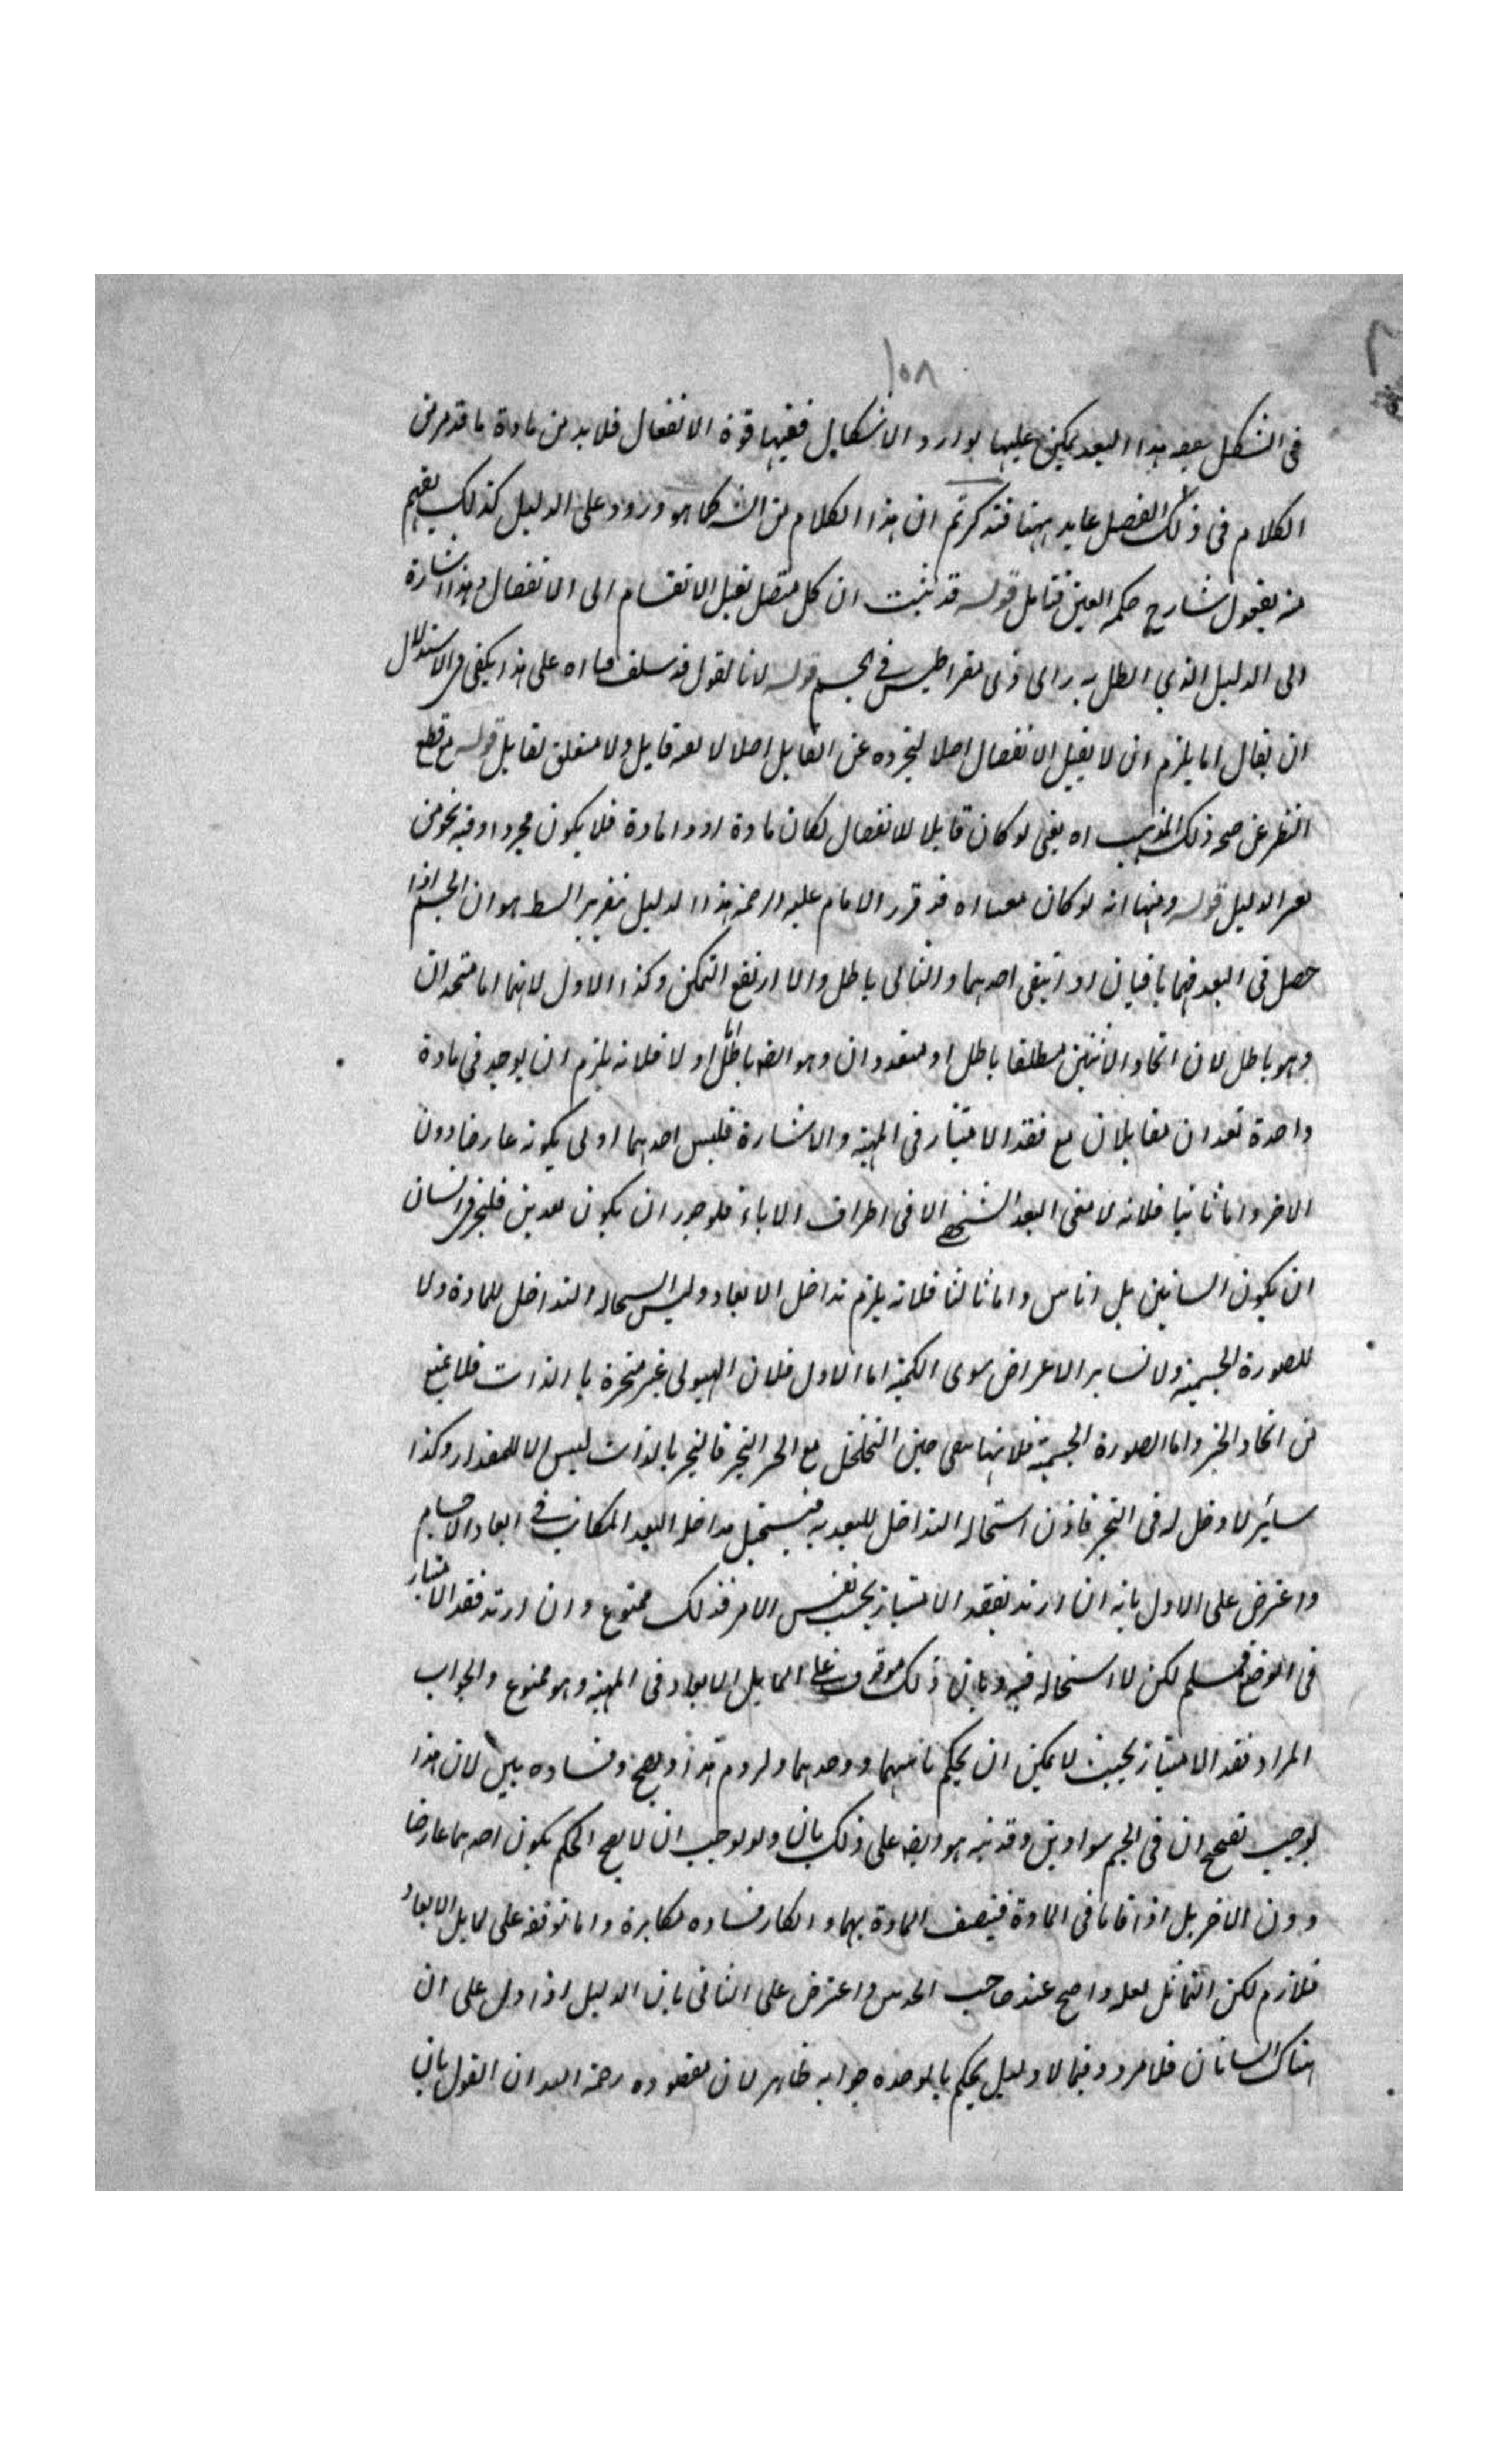 ١٥٨
فى الشكل بعد هذا البعد يمكن عليها توارد الاشكال ففيها قوة الانفعال فلا بد من مادة ما قد مر من
الكلام فى ذلك الفصل عايد ههنا فتذكر ثم ان هذا الكلام من الش كما هو ورود على الدليل كذلك يفهم
منه يقول شارح حكمة العين فتامل قوله قد ثبت ان كل متصل يقبل الانقسام الى الانفصال وهذا اشارة
الى الدليل الذي ابطل به راى ذى مقراطيس فى الجسم قوله لانا نقول قد سلف اه على هذا يكفى فى الاستدلال
ان يقال اما يلزم ان لا يقبل الانفصال اصلا لتجرده عن القابل اصلا لا قابل ولا متعلق لقابل قوله مع قطع
النظر عن صحة ذلك المذهب اه يعنى لو كان قابلا للانفصال لكان مادة او ذا مادة فلا يكون مجردا وفيه نحو من
الدليل قوله ومنها انه لو كان اه قد قرر الامام عليه الرحمة هذا الدليل بتقرير ابسط هو ان الجسم اذا
حصل فى البعد فهما باقيان او انتفى احدهما والتالى باطل والا ارتفع التمكن وكذا الاول لانهما اما متحدان
وهو باطل لان اتحاد الاثنين مطلقا باطل او متعددان وهو ايضا باطل اما اولا فلانه يلزم ان يوجد فى مادة
واحدة بعدان متقابلان مع فقد الامتياز فى المهية والاشارة فليس احدهما اولى بكونه عارضا دون
الاخر واما ثانيا فلانه لا معنى البعد الشخصى الا فى اطراف الاناء فلو جوز ان يكون بعدين فليجز فى انسان
ان يكون انسانين بل اناس واما ثالثا فلانه يلزم تداخل الابعاد وليس استحالة التداخل للمادة ولا
للصورة الجسمية ولا لساير الاعراض سوى الكمية اما الاول فلان الهيولى غير متحيزة بالذات فلا يمتنع
من اتحاد الحيز واما الصورة الجسمية فلانها تبقى حين التخلخل مع الحيز فالتحيز بالذات ليس الا للمقدار وكذا
ساير لا دخل له فى التحيز فاذن استحالة التداخل للبعدية فيستحيل مداخلة البعد المكانى فى ابعاد الاجسام
واعترض على الاول بانه ان اريد بفقد الامتياز بحسب نفس الامر فذلك ممنوع وان اريد فقد الامتياز
فى الوضع فمسلم لكن لا استحالة فيه وبان ذلك موقوف على تماثل الابعاد فى المهية وهو ممنوع والجواب
المراد فقد الامتياز بحيث لا يمكن ان يحكم باثنينهما ووحدتهما ولزوم وفساده بين لان هذا
يوجب تصحيح ان فى الجسم سوادين وقد نبه هو ايضا على ذلك بان ولو لوجب ان لا يصح الحكم بكون احدهما عارضا
دون الاخر بل اذا قاما فى المادة فيتصف المادة بهما وانكار فساده مكابرة واما توقفه على تماثل الابعاد
فلازم لكن التماثل لعله واضح عند صاحب الحدس واعترض على الثانى بان الدليل اذا دل على ان
هناك انسانان فلا مرد وفيما لا دليل يحكم بالوحدة جوابه ظاهر لان مقصوده رحمه الله ان القول بان